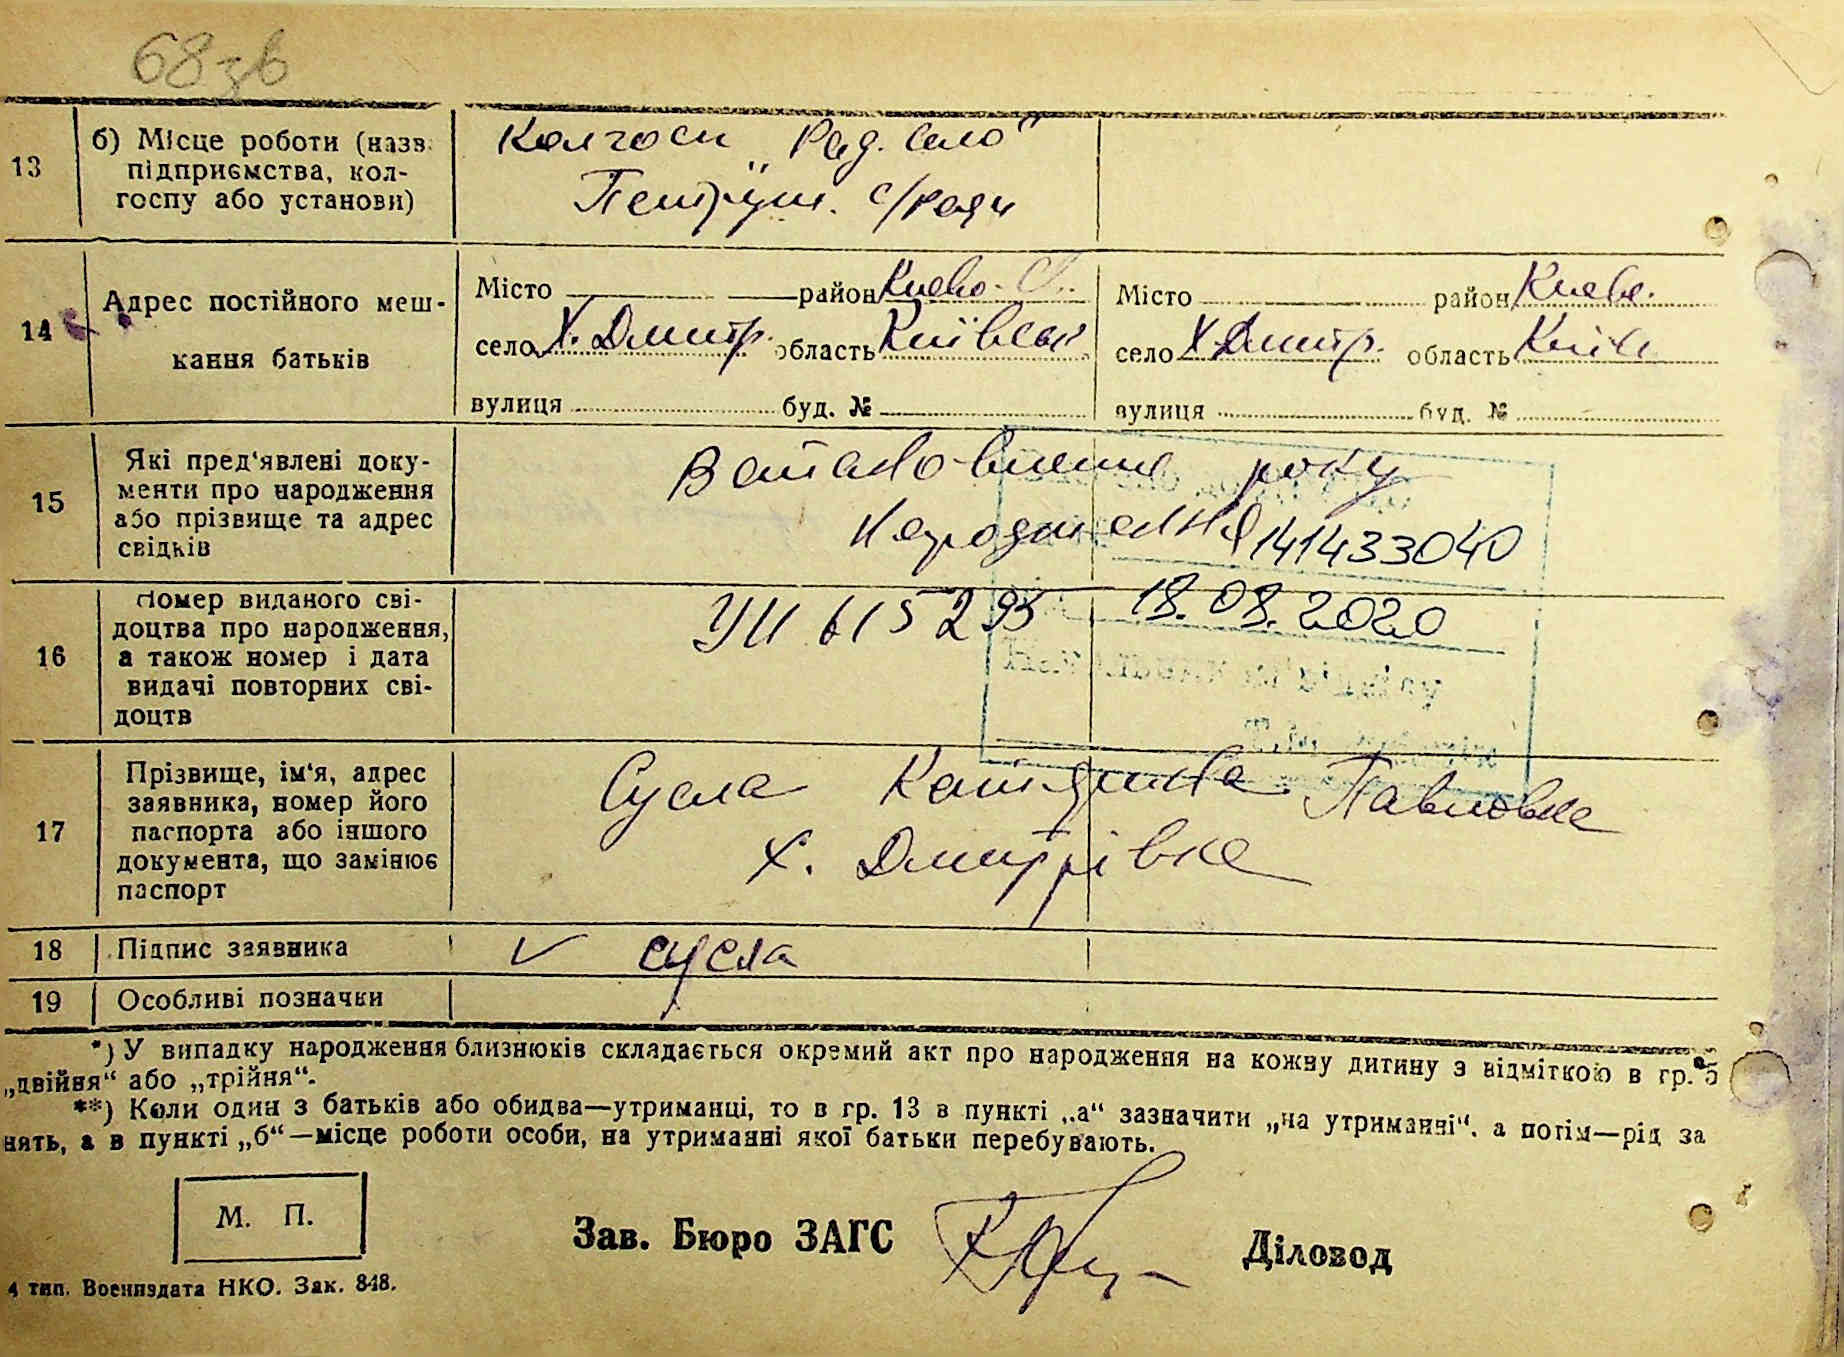 68зв
13
б) Місце роботи (назв.
підприємства, кол-
госпу або установи)
Колгосп „Рад. село"
Петруш. с/ради
14
Адрес постійного меш-
кання батьків
Місто район Києво-С.
село Х. Дмитр. область Київськ
вулиця буд. №
Місто район Києво.
село Х. Дмитр. область Київ
вулиця буд. №
15
Які пред'явлені доку-
менти про народження
або прізвище та адрес
свідків
Встановлення року
народження 141433040
16
Номер виданого сві-
доцтва про народження,
а також номер і дата
видачі повторних сві-
доцтв
615295 18.08.2020
17
Прізвище, ім'я, адрес
заявника, номер його
паспорта або іншого
документа, що замінює
паспорт
Сусла Катерина Павловна
Х. Дмитрівка
18
Підпис заявника
Сусла
19
Особливі позначки
*) У випадку народження близнюків складається окремий акт про народження на кожну дитину з відміткою в гр. 5
„двійня" або „трійня".
**) Коли один з батьків або обидва—утриманці, то в гр. 13 в пункті „а" зазначити „на утриманні", а потім—рід за
нять, а в пункті „б"—місце роботи особи, на утриманні якої батьки перебувають.
М. П.
Зав. Бюро ЗАГС
Діловод
4 тип. Воениздата НКО. Зак. 848.